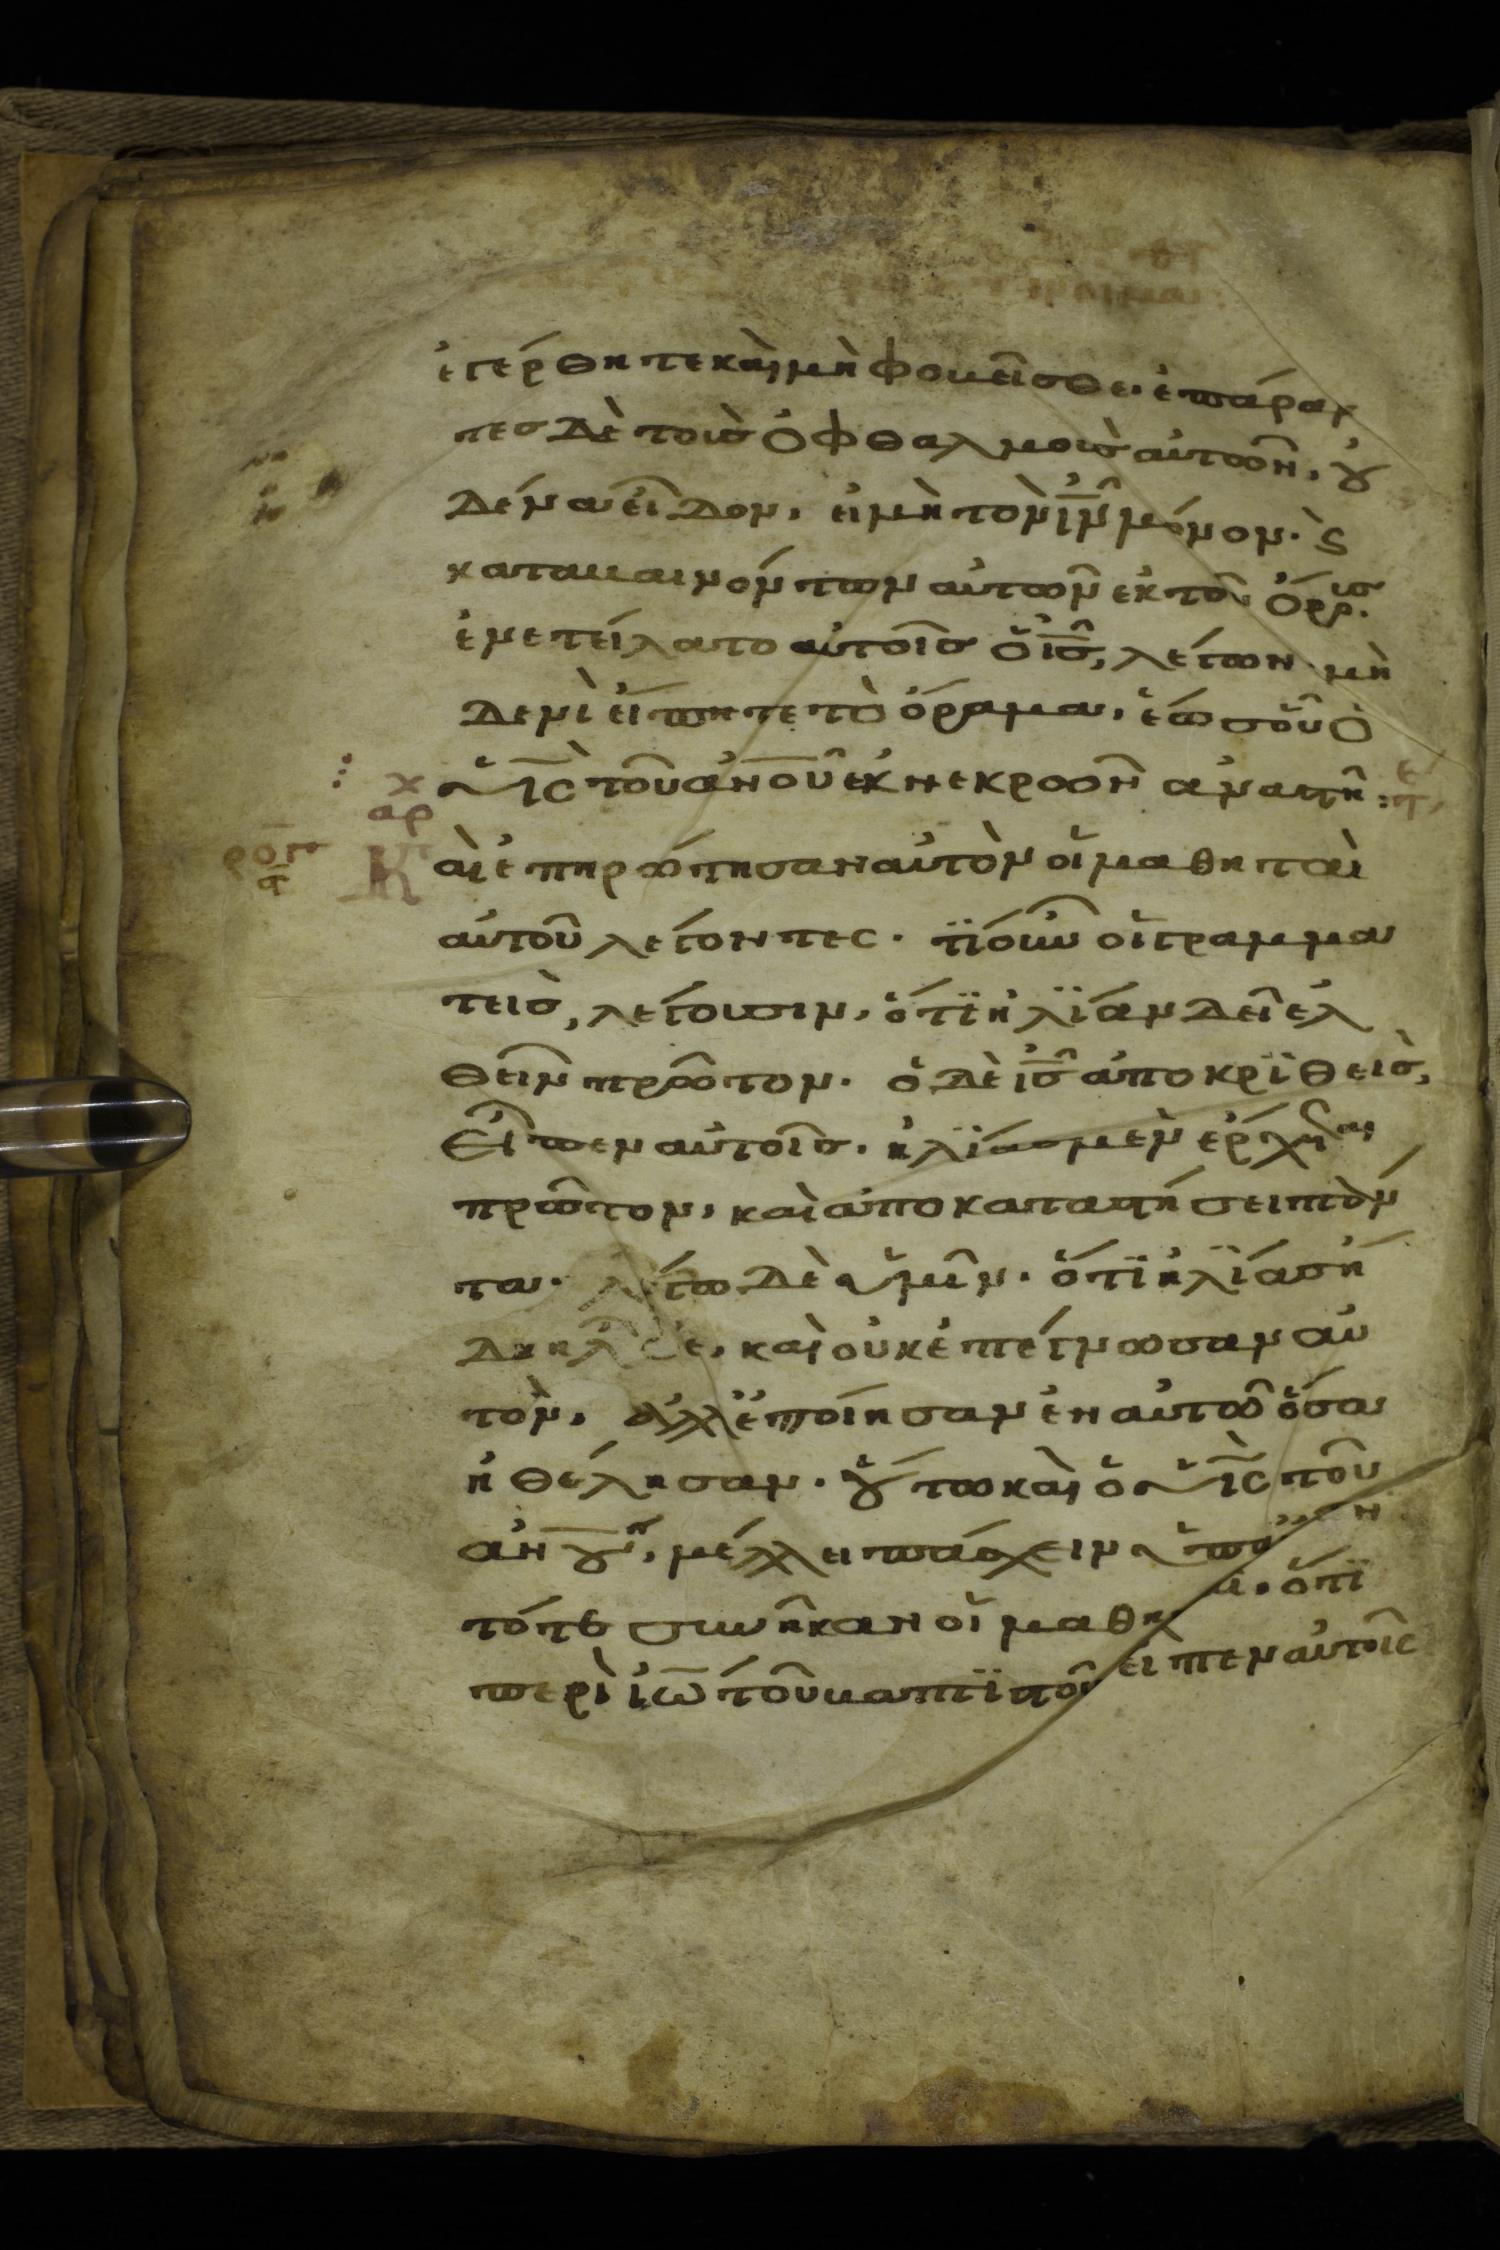 ἐγέρθητε καὶ μὴ φοβεῖσθε· ἐπάραν
τες δὲ τοὺς ὀφθαλμοὺς αὐτῶν, οὐ
δένα εἶδον, εἰ μὴ τὸν ἰν̅ μόνον· ϛ
καταβαινόντων αὐτῶν ἐκ τοῦ ὄρους.
ἐνετείλατο αὐτοῖς ὁ ἰς̅, λέγων· μη
δενὶ εἴπητε τὸ ὅραμα, ἕως οὗ ὁ
υἱς̅ τοῦ ἀν̅ο̅υ̅ ἐκ νεκρῶν ἀναστῇ:
χ
αρ
ρο̅γ
α
Καὶ ἐπηρώτησαν αὐτὸν οἱ μαθηταὶ
αὐτοῦ λέγοντες· τί οὖν οἱ γραμμα
τεῖς, λέγουσιν, ὅτι ἠλίαν δεῖ ἐλ
θεῖν πρῶτον· ὁ δὲ ἰς̅ ἀποκριθεὶς,
εἶπεν αὐτοῖς· ἠλίας μὲν ἔρχεται
πρῶτον, καὶ ἀποκαταστήσει πάν
τα· λέγω δὲ ὑμῖν· ὅτι ἠλίας ἤ
δη ἦλθε, καὶ οὐκ ἐπέγνωσαν αὐ
τὸν, ἀλλ' ἐποίησαν ἐν αὐτῷ ὅσα
ἠθέλησαν· οὕτω καὶ ὁ υἱς̅ τοῦ
ἀν̅ου̅, μέλλει πάσχειν ὑπ'
τότε συνῆκαν οἱ μαθη ὅτι
περὶ ἰω̅ τοῦ βαπτιστοῦ εἶπεν αὐτοῖς